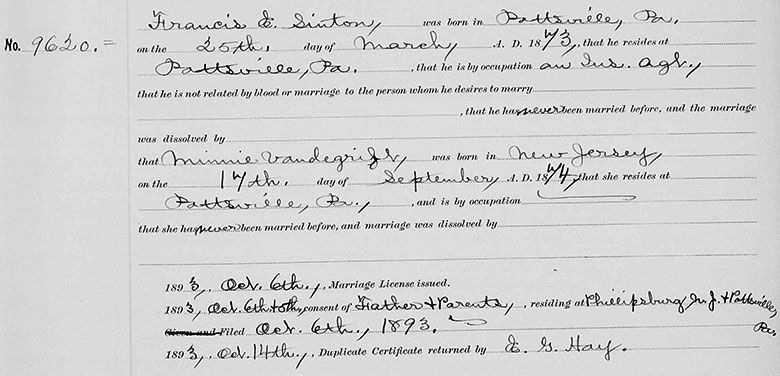 Francis E. Sinton, was born in Pottsville, Pa.
No. 9620.= on the 25th. day of March, A. D. 1873, that he resides at
Pottsville, Pa. , that he is by occupation an Ins. Agt.,
that he is not related by blood or marriage to the person whom he desires to marry
, that he has never been married before, and the marriage
was dissolved by
that Minnie Vandegrift, was born in New Jersey,
on the 17th. day of September, A. D. 1874, that she resides at
Pottsville, Pa., , and is by occupation
that she has never been married before, and marriage was dissolved by
1893, Oct. 6th., , Marriage License issued.
1893, Oct. 6th, consent of Father & Parents, , residing at Phillipsburg N. J. & Pottsville, Pa.
Given and Filed Oct. 6th., 1893.
1893, Oct. 14th., , Duplicate Certificate returned by E. G. Hay.